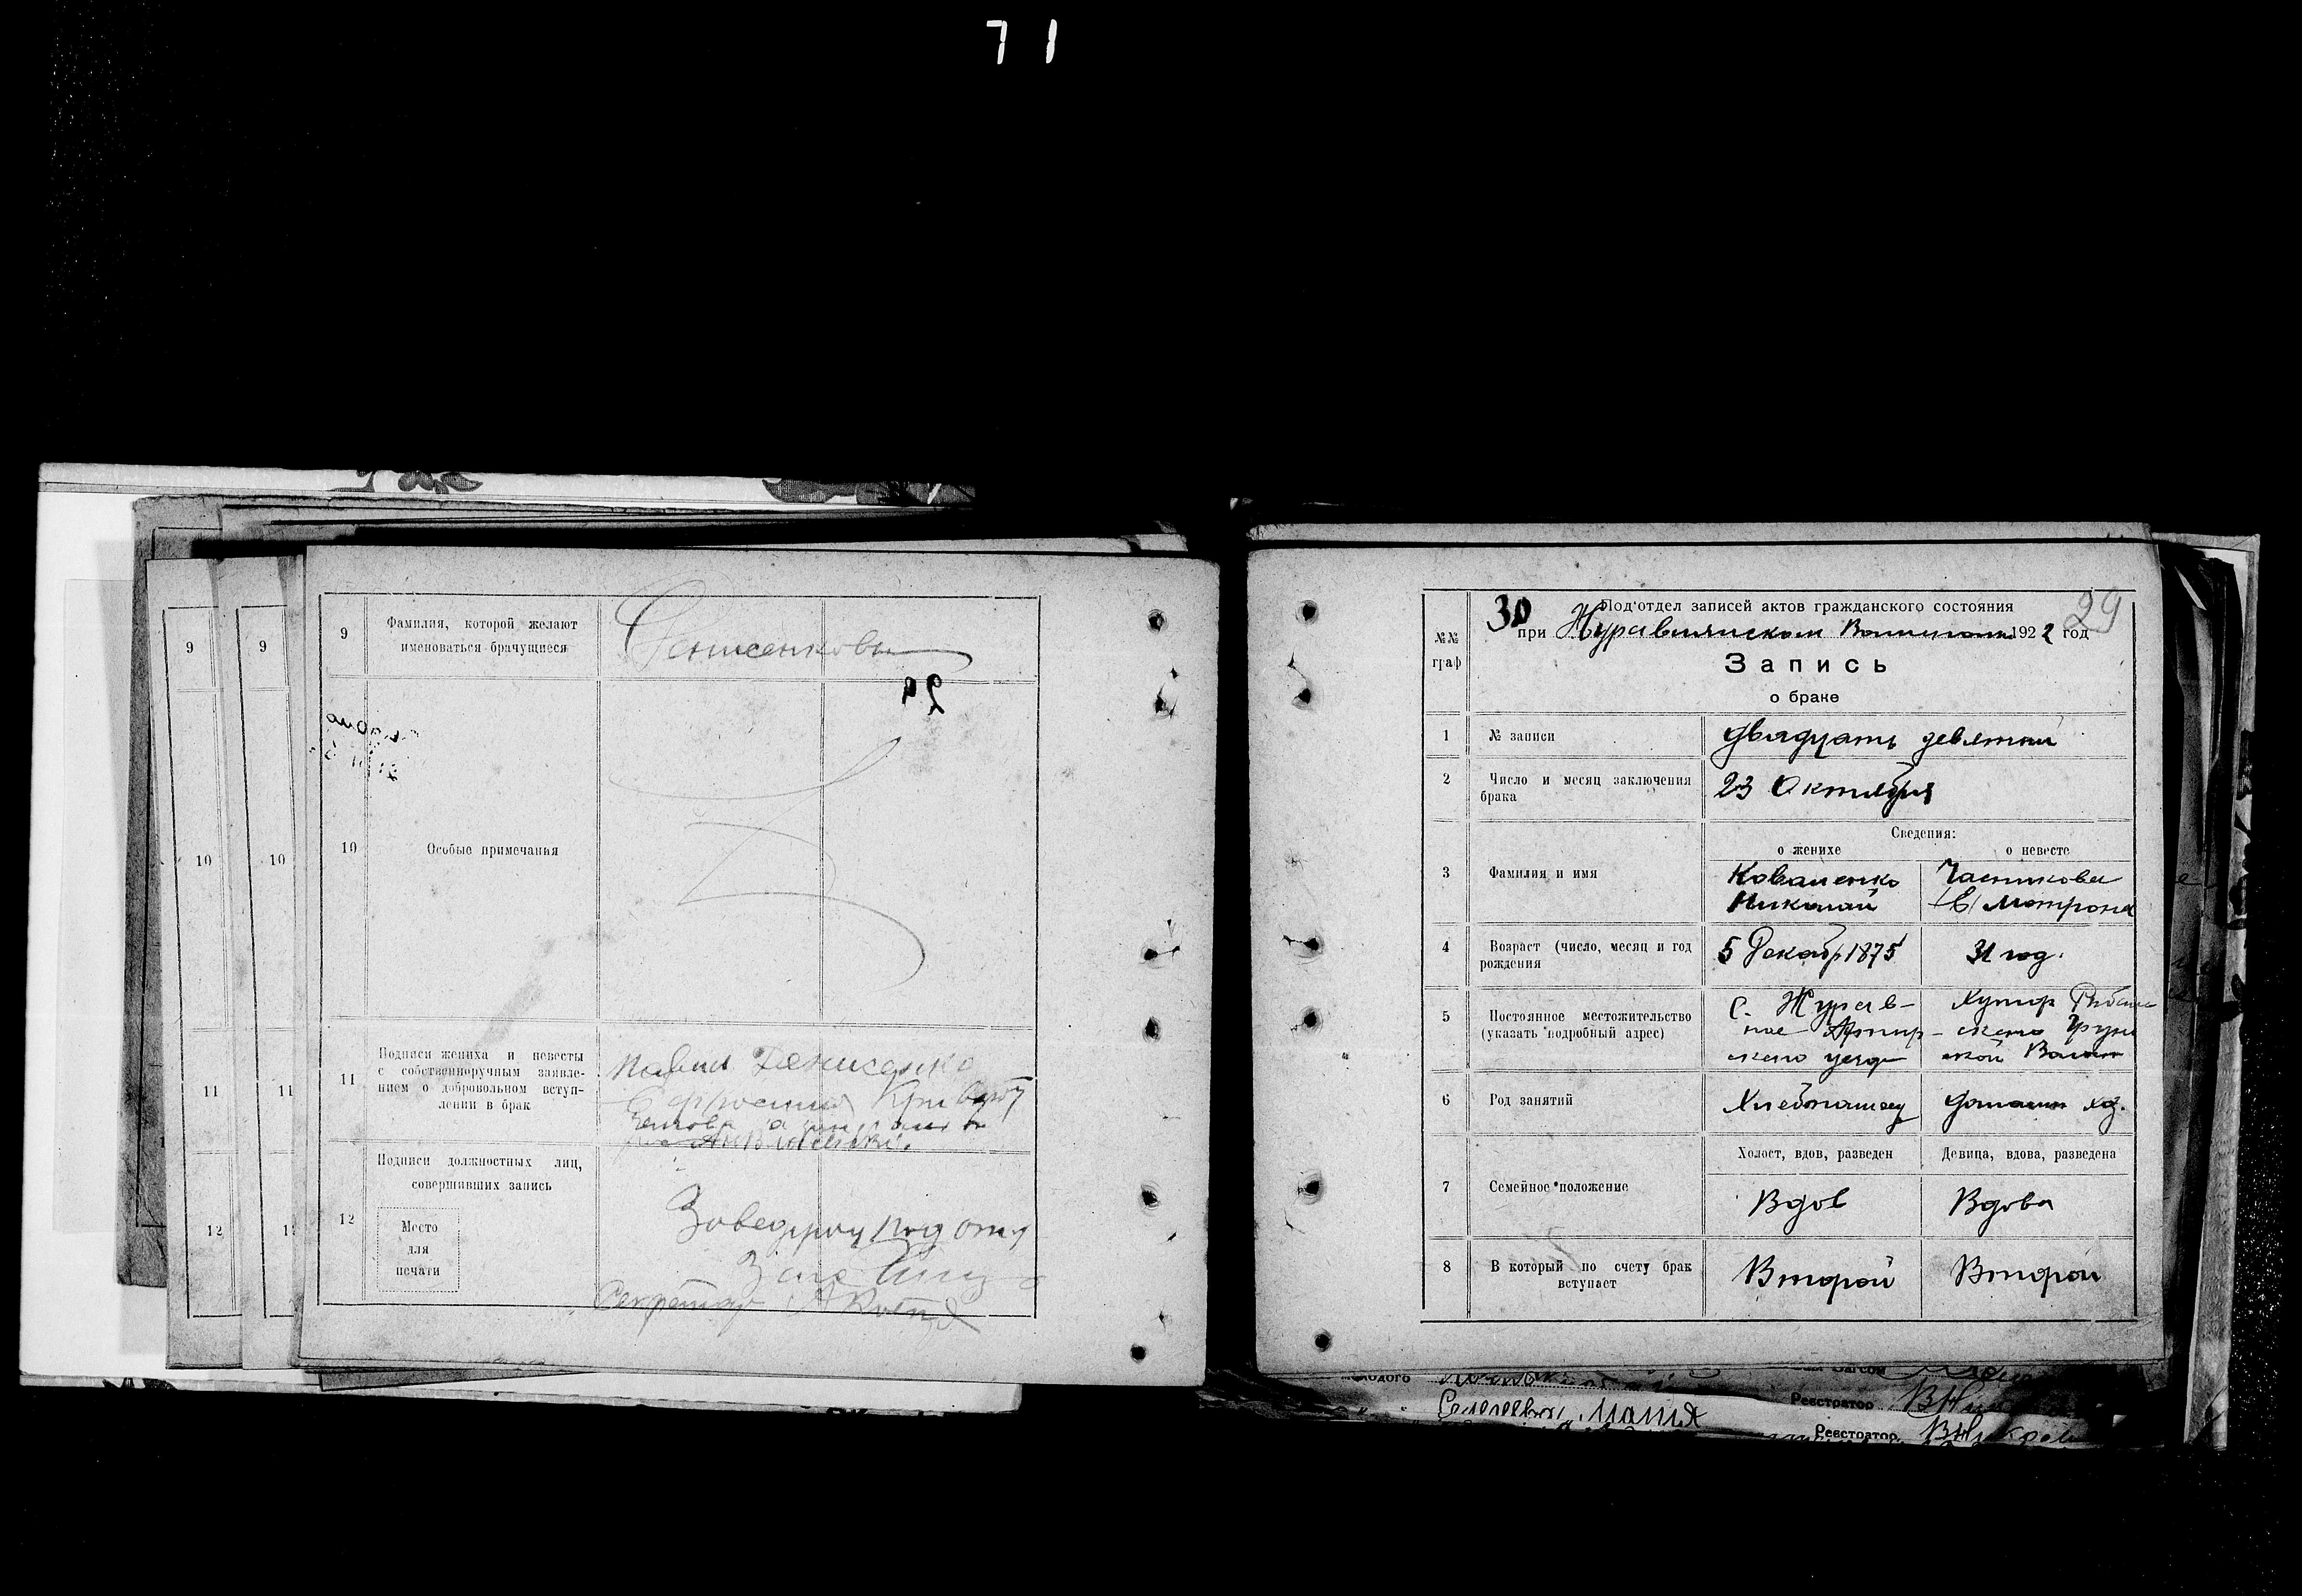 71
9
9
9
Фамилия, которой желают
именоваться брачущиеся
Денисенковы
10
10
10
Особые примечания
11
11
11
Подписи жениха и невесты
с собственноручным заявле-
нием о добровольном вступ-
лении в брак
Павел Денисенко
12
12
12
Подписи должностных лиц,
совершивших запись
Место
для
печати
Секретар
30
29
№№
граф
Под'отдел записей актов гражданского состояния
при Журавлянском 1922 год
Запись
о браке
1 № записи
двадцать девятый
2 Число и месяц заключения
брака
23 Октября
Сведения:
о женихе о невесте
3 Фамилия и имя
Коваленко
Николай
Мотрона
4 Возраст (число, месяц и год
рождения
5 Декабр 1875
31 год.
5 Постоянное местожительство
(указать подробный адрес)
С. Журав-
ное
ского уезд
Хутор
ской Волит
6 Род занятий
Хлебопашец
домашн хоз.
Холост, вдов, разведен Девица, вдова, разведена
7 Семейное положение
Вдов Вдова
8 В который по счету брак
вступает
Второй Второй
Реестратор
Реестратор